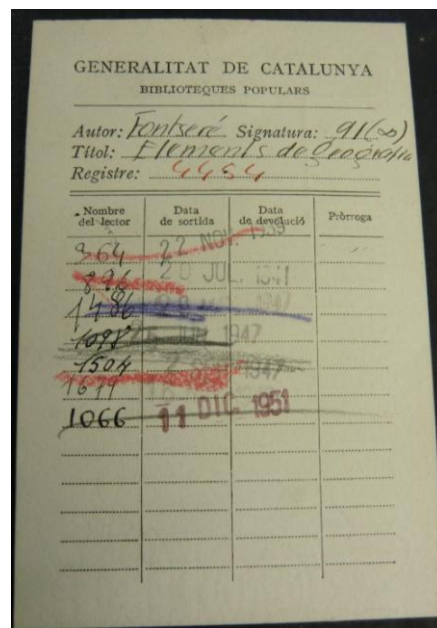 GENERALITAT DE CATALUNYA
BIBLIOTEQUES POPULARS
Autor: Fontseré Signatura: 91(∞)
Títol: Elements de Geografia
Registre: 4454
Nombre del lector Data de sortida Data de devolució Pròrroga
364 22 NOV. 1939
896 20 JUL. 1941
1486 1947
1098 JUN 1947
1504 1947
1679
1066 11 DIC 1951